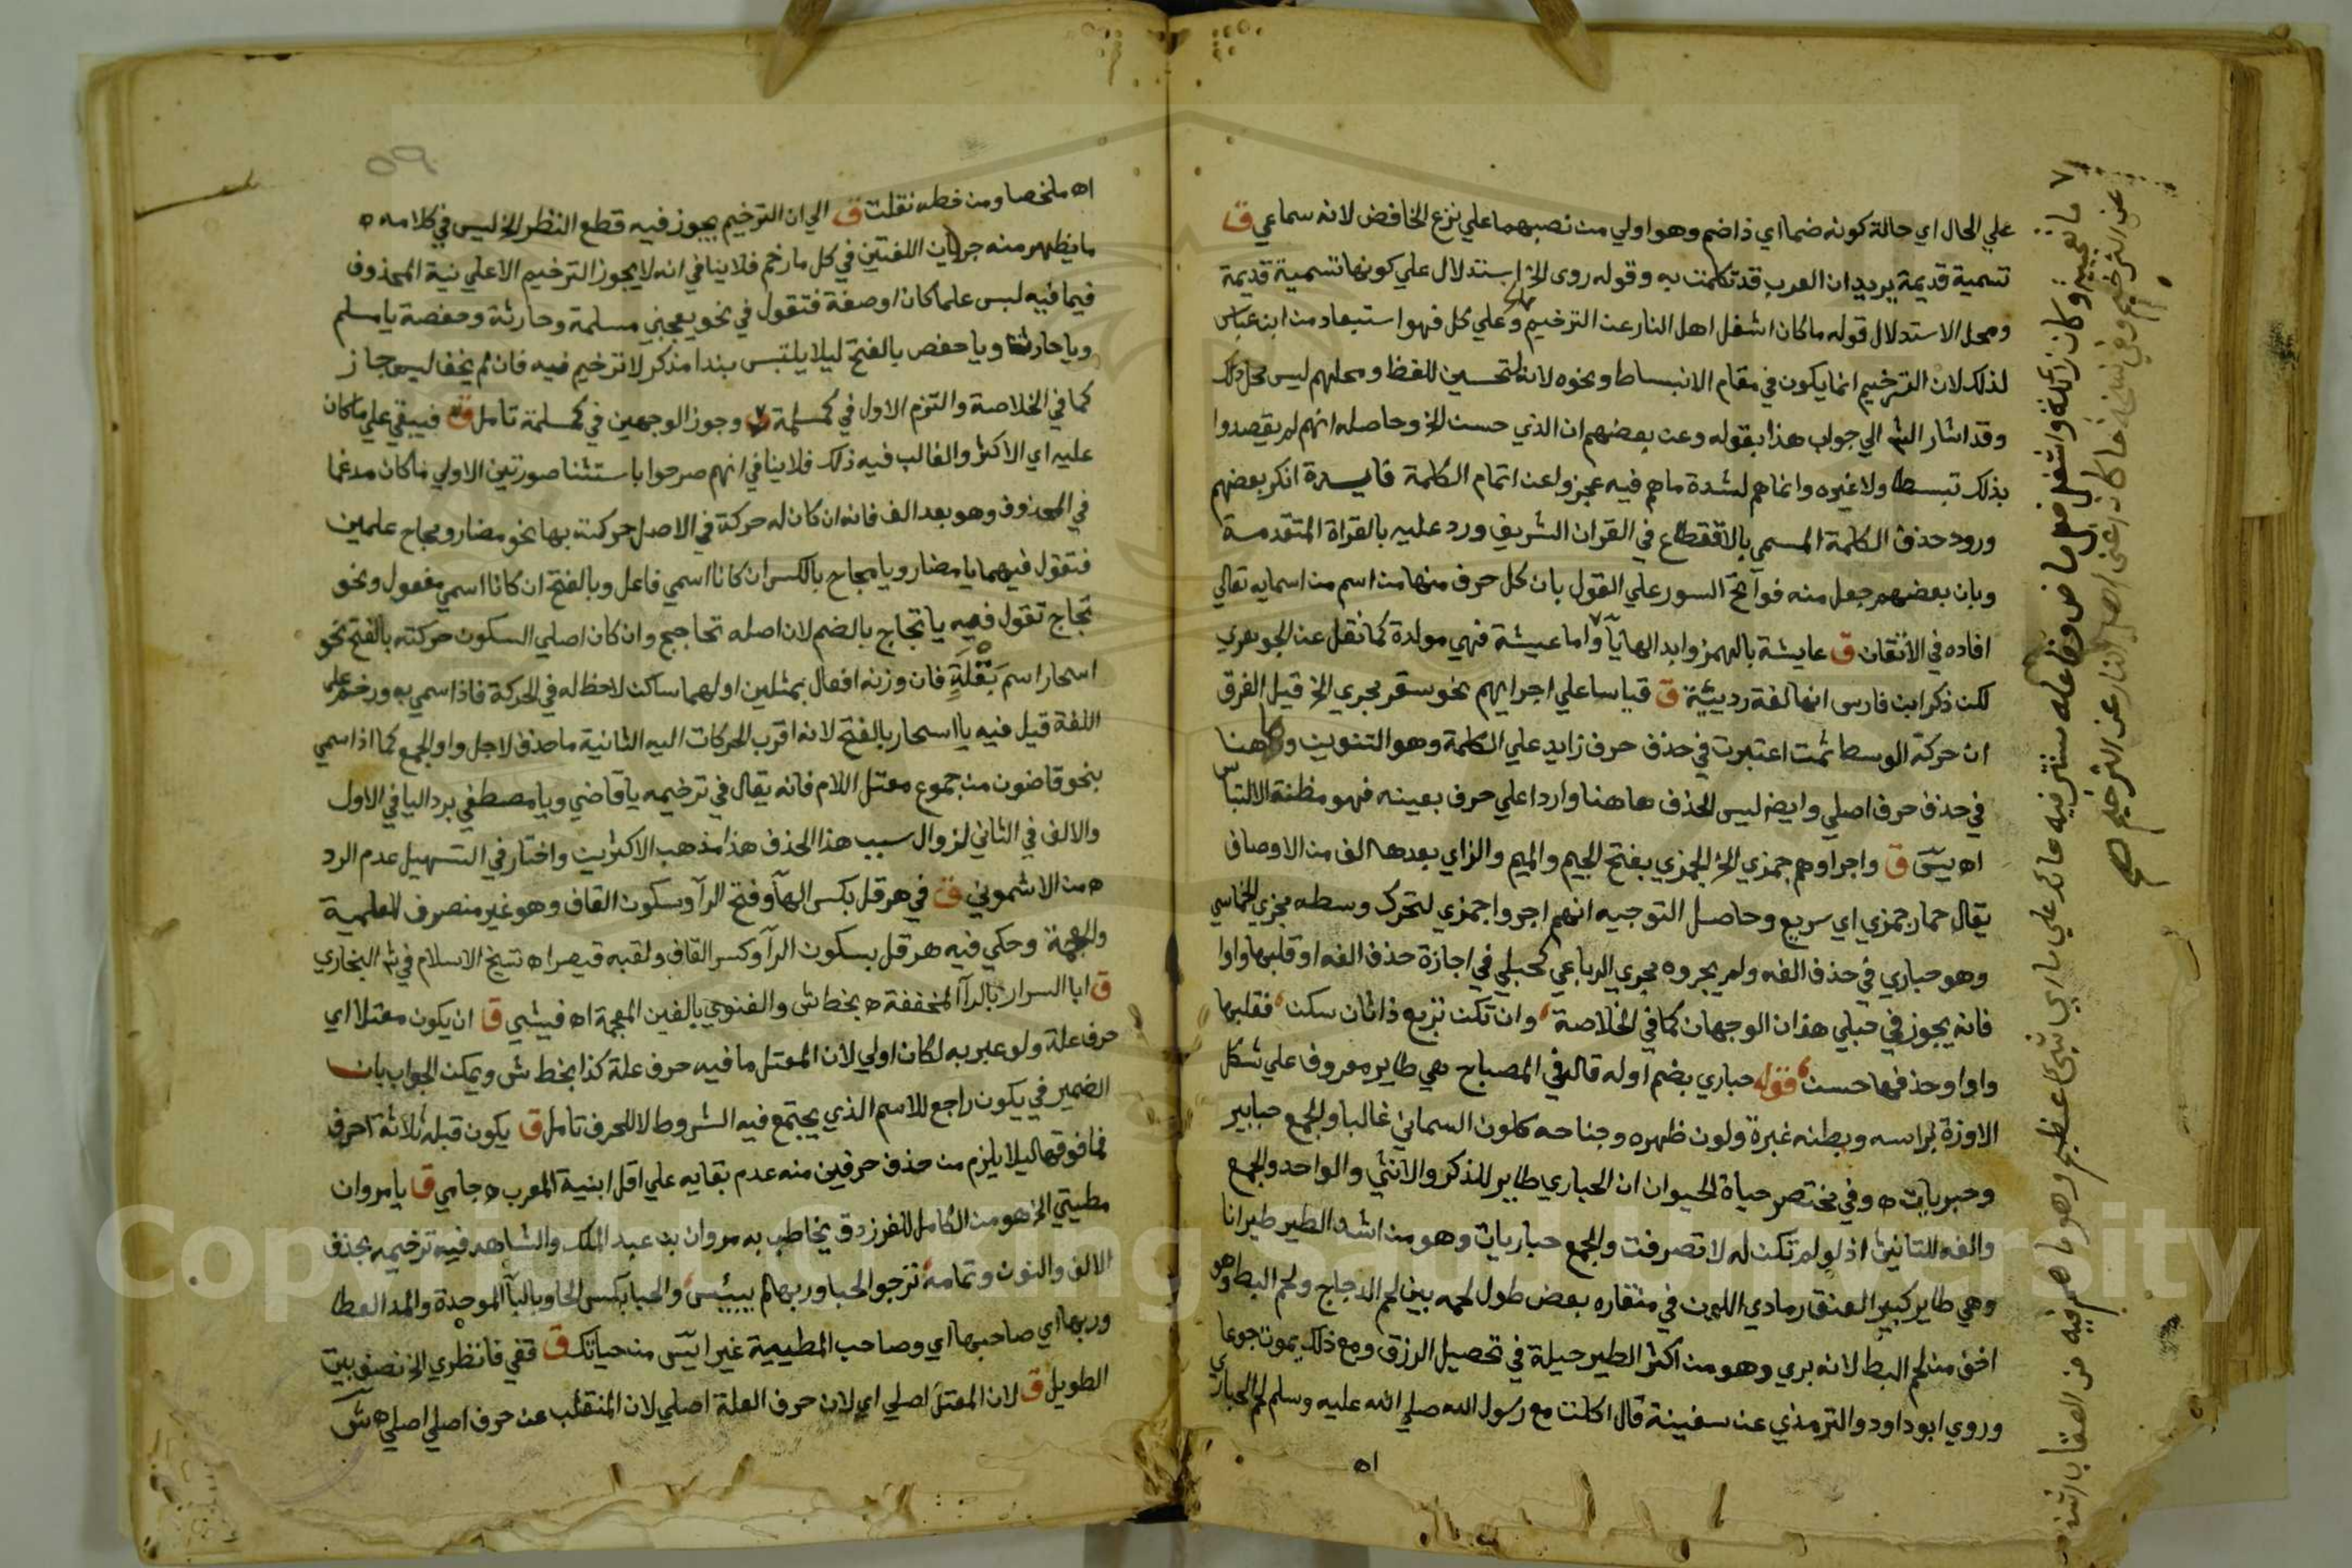 علي الحال اي حالة كونه ضما اي ذا ضم وهو اولي من نصبهما علي نزع الخافض لانه سماعي ق
تسمية قديمة يريد ان العرب قد تكلمت به وقوله روى الخ استدلال علي كونها تسمية قديمة
ومحل الاستدلال قوله ما كان اشغل اهل النار عن الترخيم وعلي كل فهو استبعاد من ابن عباس
لذلك لان الترخيم انما يكون في مقام الانبساط ونحوه لانه لتحسين اللفظ ومحلهم ليس محل ذلك
وقد اشار الش الي جواب هذا بقوله وعن بعضهم ان الذي حسن الخ وحاصله انهم لم يقصدوا
بذلك تبسطا ولا غيره وانما هم لشدة ما هم فيه عجزوا عن اتمام الكلمة فايدة انكر بعضهم
ورود حذف الكلمة المسمي بالاقتطاع في القران الشريف ورد عليه بالقراة المتقدمة
وبان بعضهم جعل منه فواتح السور علي القول بان كل حرف منها من اسم من اسمايه تعالي
افاده في الاتقان ق عايشة بالهمز وابدالها يآ واما عيشة فهي مولدة كما نقل عن الجوهري
لكن ذكر ابن فارس انها لغة رديئة ق قياسا علي اجرايهم نحو سقر مجري الخ قيل الفرق
ان حركة الوسط ثمت اعتبرت في حذف حرف زايد علي الكلمة وهو التنوين وهاهنا
في حذف حرف اصلي وايضا ليس الحذف هاهنا واردا علي حرف بعينه فهو مظنة الالتباس
اه يسَ ق واجراوهم جمزي الخ الجمزي بفتح الجيم والميم والزاي بعدها الف من الاوصاف
يقال حمار جمزي اي سريع وحاصل التوجيه انهم اجروا جمزي لتحرك وسطه مجري الخماسي
وهو حباري في حذف الفه ولم يجروه مجري الرباعي كحبلي في اجازة حذف الفه او قلبها واوا
فانه يجوز في حبلي هذان الوجهان كما في الخلاصة وان تكن تربع ذا ثان سكن فقلبها
واوا وحذفها حسن قوله حباري بضم اوله قال في المصباح هي طاير معروف علي شكل
الاوزة براسه وبطنه غبرة ولون ظهره وجناحه كلون السماني غالبا والجمع حبابير
وحبريات ه وفي مختصر حياة الحيوان ان الحباري طاير للذكر والانثي والواحد والجمع
والفه للتانيث اذ لو لم تكن له لانصرفت والجمع حباريات وهو من اشد الطير طيرانا
وهي طاير كبير العنق رمادي اللون في منقاره بعض طول لحمه بين لحم الدجاج ولحم البط وهو
اخف من لحم البط لانه بري وهو من اكثر الطير حيلة في تحصيل الرزق ومع ذلك يموت جوعا
وروي ابوداود والترمذي عن سفينة قال اكلت مع رسول الله صلي الله عليه وسلم لحم الحباري
اه
اه ملخصا ومن خطه نقلت ق الي ان الترخيم يجوز فيه قطع النظر الخ ليس في كلامه ه
ما يظهر منه جريان اللغتين في كل ما رخم فلا ينافي انه لا يجوز الترخيم الا علي نية المحذوف
فيما فيه لبس علما كان او صفة فتقول في نحو يعجبني مسلمة وحارثة وحفصة يا مسلم
ويا حارث ويا حفص بالفتح ليلا يلتبس بندا مذكر لا ترخيم فيه فان لم يخف لبس جاز
كما في الخلاصة والتزم الاول في كمسلمة وجوز الوجهين في كمسلمة تامل ق فيبقي علي ما كان
عليه اي الاكثر والغالب فيه ذلك فلا ينافي انهم صرحوا باستثنا صورتين الاولي ما كان مدغما
في المحذوف وهو بعد الف فانه ان كان له حركة في الاصل حركته بها نحو مضار ومحاج علمين
فتقول فيهما يا مضار ويا محاج بالكسر ان كانا اسمي فاعل وبالفتح ان كانا اسمي مفعول ونحو
تحاج تقول فيه يا تحاج بالضم لان اصله تحاجج وان كان اصلي السكون حركته بالفتح نحو
اسحار اسم بَقْلَةٍ فان وزنه افعال بمثلين اولهما ساكن لاحظ له في الحركة فاذا سمي به ورخم علي
اللغة قيل فيه يا اسحار بالفتح لانه اقرب الحركات اليه الثانية ما حذف لاجل واو الجمع كما اذا سمي
بنحو قاضون من جموع معتل اللام فانه يقال في ترخيمه يا قاضي ويا مصطفي برد اليا في الاول
والالف في الثاني لزوال سبب هذا الحذف هذا مذهب الاكثرين واختار في التسهيل عدم الرد
ه من الاشموني ق في هرقل بكسر الهآ وفتح الرآ وسكون القاف وهو غير منصرف للعلمية
والعجمة وحكي فيه هرقل بسكون الرآ وكسر القاف ولقبه قيصر اه شيخ الاسلام في ش البخاري
ق ابا السرار بالرآ المخففة ه بخط ش والغنوي بالغين المعجمة اه فيشي ق ان يكون معتلا اي
حرف علة ولو عبر به لكان اولي لان المعتل ما فيه حرف علة كذا بخط ش ويمكن الجواب بان
الضمير في يكون راجع للاسم الذي يجتمع فيه الشروط لا للحرف تامل ق يكون قبله ثلاثة احرف
فما فوقها ليلا يلزم من حذف حرفين منه عدم بقايه علي اقل ابنية المعرب ه جامي ق يا مروان
مطيتي الخ هو من الكامل للفرزدق يخاطب به مروان بن عبد الملك والشاهد فيه ترخيمه بحذف
الالف والنون وتمامه ترجو الحبا وربها لم ييئس والحبا بكسر الحا وبالبآ الموحدة والمد العطا
وربها اي صاحبها اي وصاحب المطيية غير ايس من حياتك ق قفي فانظري الخ نصف بيت
الطويل ق لان المعتل اصلي اي لان حرف العلة اصلي لان المنقلب عن حرف اصلي اصلي ه ش